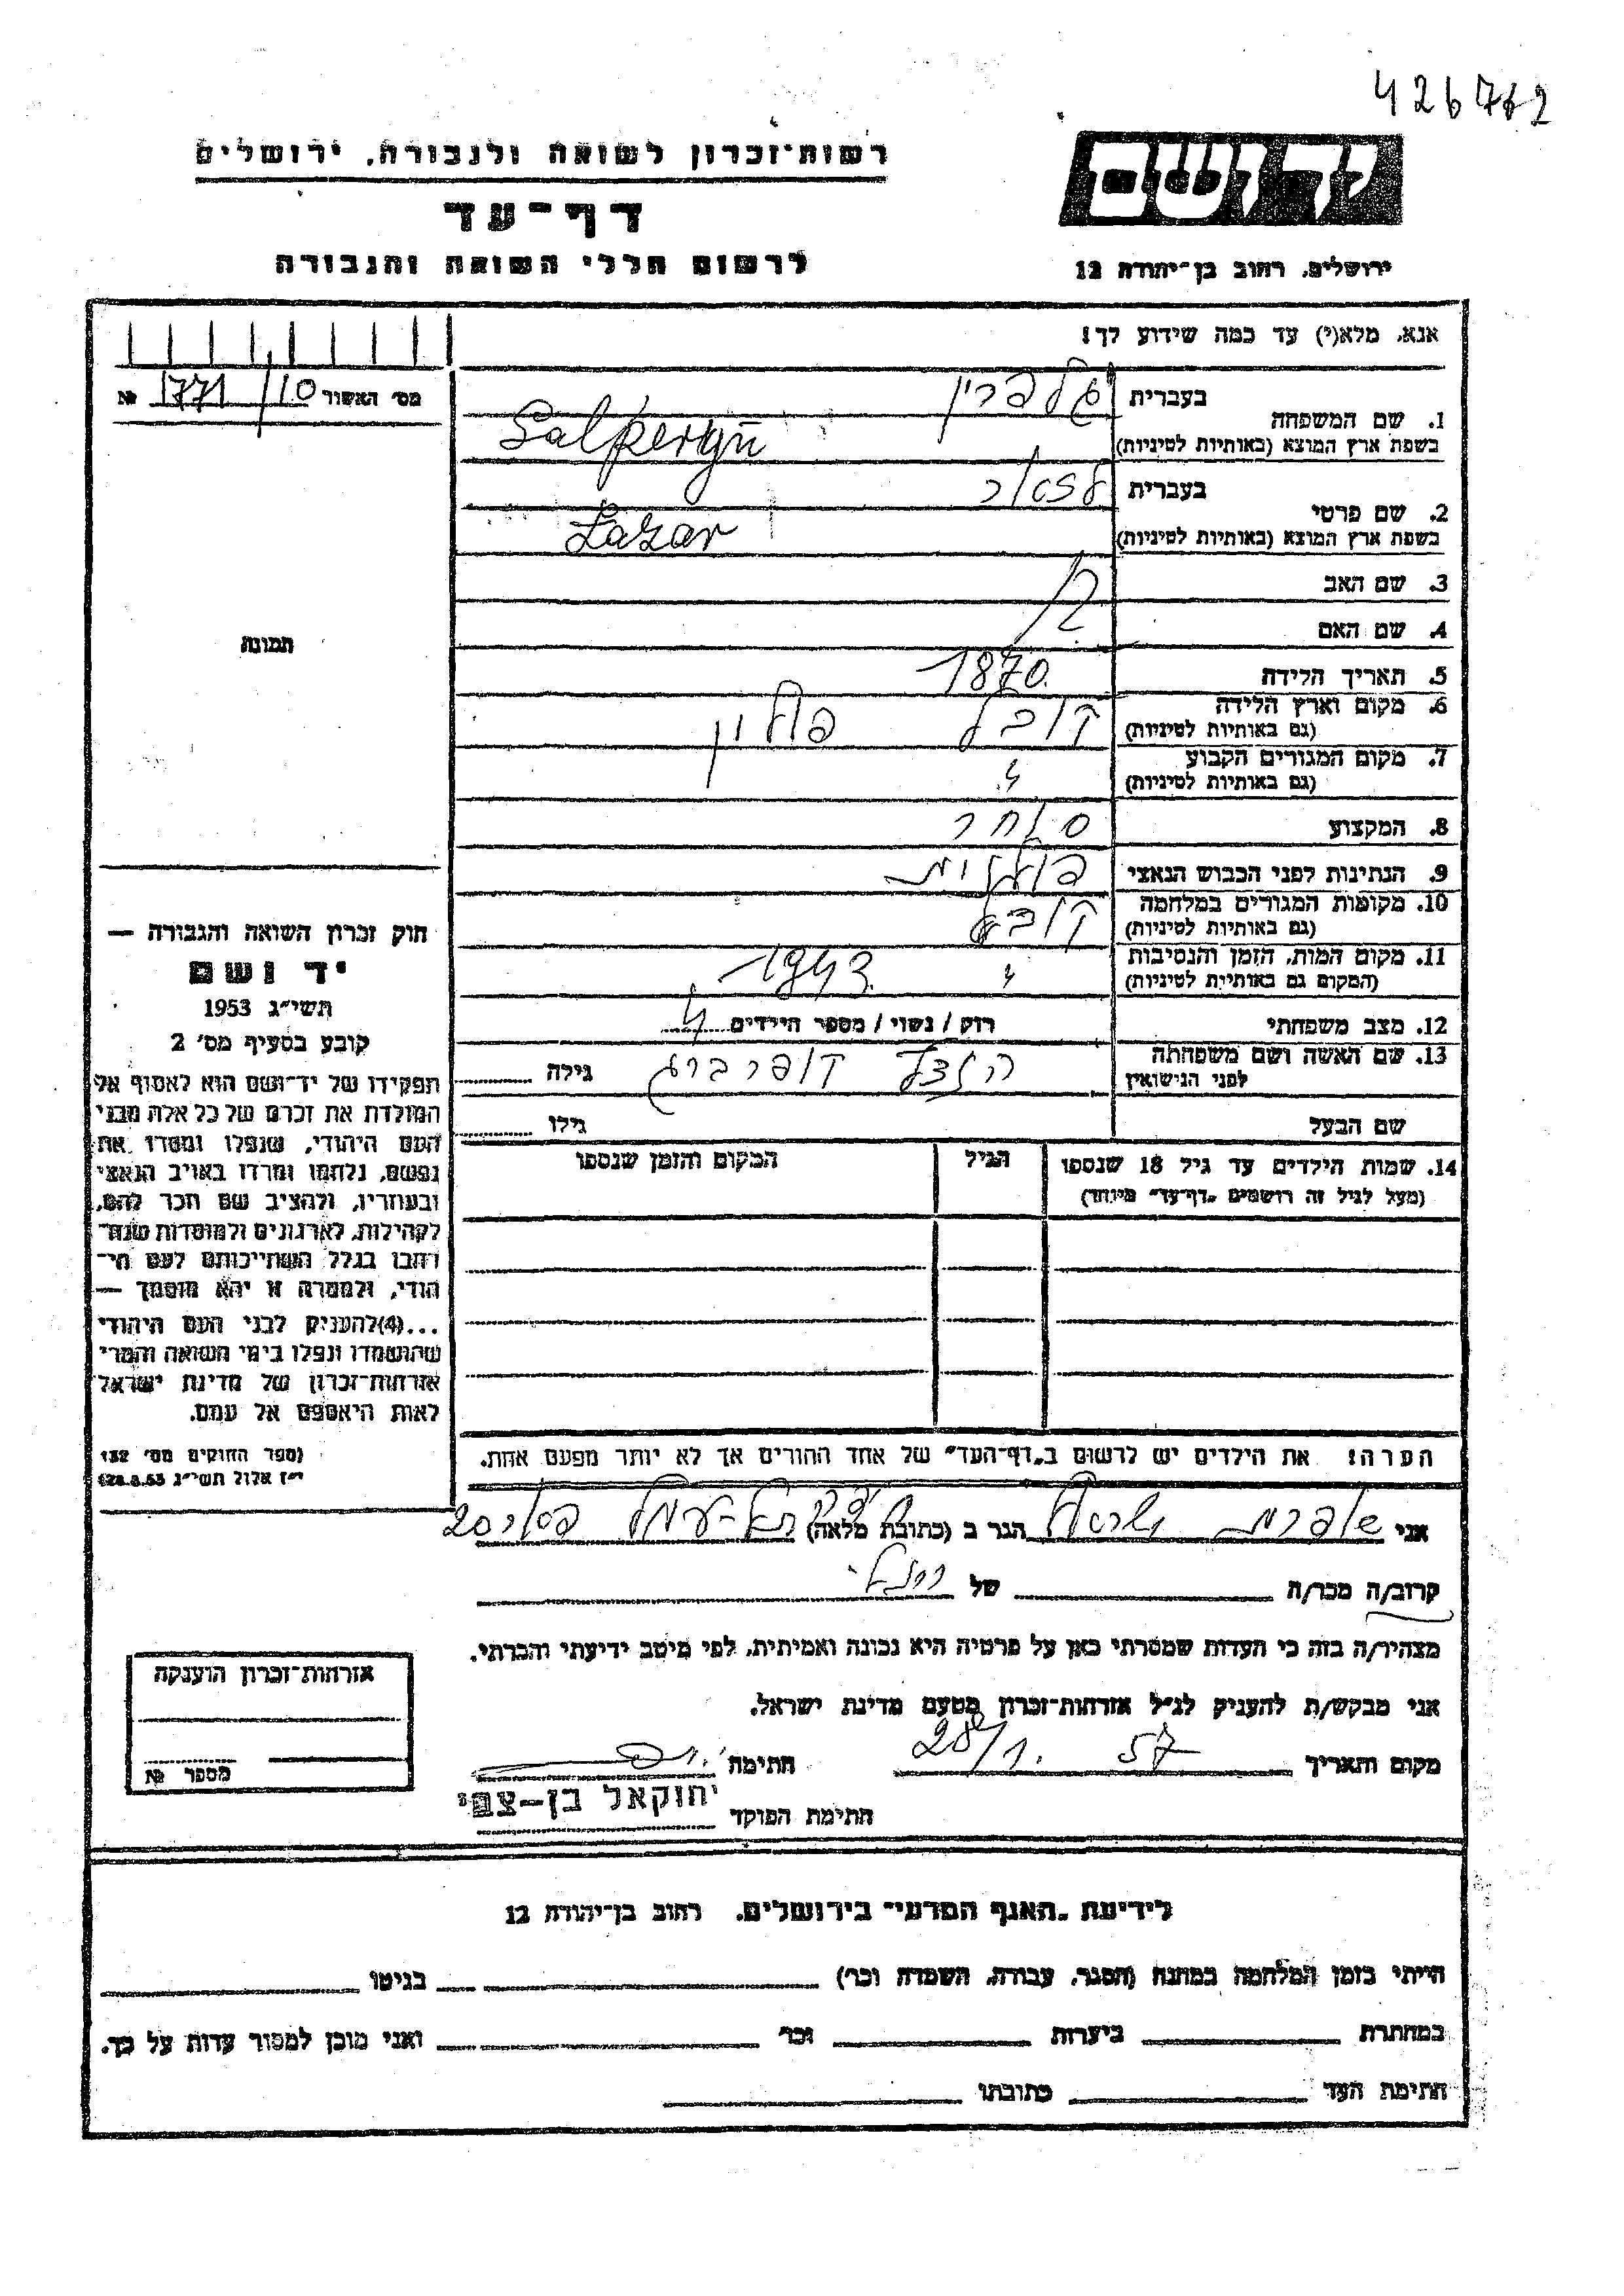 426762
רשות-זכרון לשואה ולגבורה, ירושלים
דף-עד
לרשום חללי השואה והגבורה
יד ושם
ירושלים, רחוב בן-יהודה 12
אנא, מלא(י) עד כמה שידוע לך!
מס' האשור 1771/10 №
1. שם המשפחה
בעברית גלפרין
בשפת ארץ המוצא (באותיות לטיניות) Galperyn
2. שם פרטי
בעברית לזר
בשפת ארץ המוצא (באותיות לטיניות) Lazar
3. שם האב
4. שם האם
5. תאריך הלידה 1870
6. מקום וארץ הלידה קובל פולין
(גם באותיות לטיניות)
7. מקום המגורים הקבוע "
(גם באותיות לטיניות)
8. המקצוע סוחר
9. הנתינות לפני הכבוש הנאצי פולנית
10. מקומות המגורים במלחמה קובל
(גם באותיות לטיניות)
11. מקום המות, הזמן והנסיבות " 1943
(המקום גם באותיות לטיניות)
12. מצב משפחתי רוק / נשוי / מספר הילדים 4
13. שם האשה ושם משפחתה
לפני הנישואין גילה
שם הבעל גילו
14. שמות הילדים עד גיל 18 שנספו הגיל המקום והזמן שנספו
(מעל לגיל זה רושמים "דף-עד" מיוחד)
הערה: את הילדים יש לרשום ב"דף-העד" של אחד ההורים אך לא יותר מפעם אחת.
תמונה
חוק זכרון השואה והגבורה —
יד ושם
תשי"ג 1953
קובע בסעיף מס' 2
תפקידו של יד-ושם הוא לאסוף אל
המולדת את זכרם של כל אלה מבני
העם היהודי, שנפלו ומסרו את
נפשם, נלחמו ומרדו באויב הנאצי
ובעוזריו, ולהציב שם וזכר להם,
לקהילות, לארגונים ולמוסדות שנח-
רבו בגלל השתייכותם לעם הי-
הודי, ולמטרה זו יהא מוסמך —
...(4)להעניק לבני העם היהודי
שהושמדו ונפלו בימי השואה והמרי
אזרחות-זכרון של מדינת ישראל
לאות היאספם אל עמם.
(ספר החוקים מס' 132
י"ז אלול תשי"ג 28.8.53)
אני הגר ב (כתובת מלאה)
קרוב/ה מכר/ה של
מצהיר/ה בזה כי העדות שמסרתי כאן על פרטיה היא נכונה ואמיתית, לפי מיטב ידיעתי והכרתי.
אני מבקש/ת להעניק לנ"ל אזרחות-זכרון מטעם מדינת ישראל.
מקום ותאריך 28/1. 57 חתימה
חתימת הפוקד יחזקאל בן-צבי
אזרחות-זכרון הוענקה
מספר №
לידיעת "האגף המדעי" בירושלים, רחוב בן-יהודה 12
הייתי בזמן המלחמה במחנה (הסגר, עבודה, השמדה וכר') בגיטו
במחתרת ביערות וכר' ואני מוכן למסור עדות על כך.
חתימת העד כתובתו